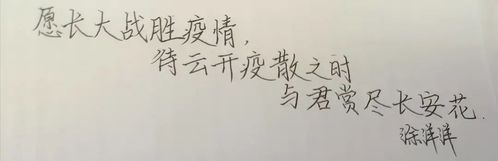 愿长大战胜疫情，
待云开疫散之时
与君赏尽长安花.
涂洋洋